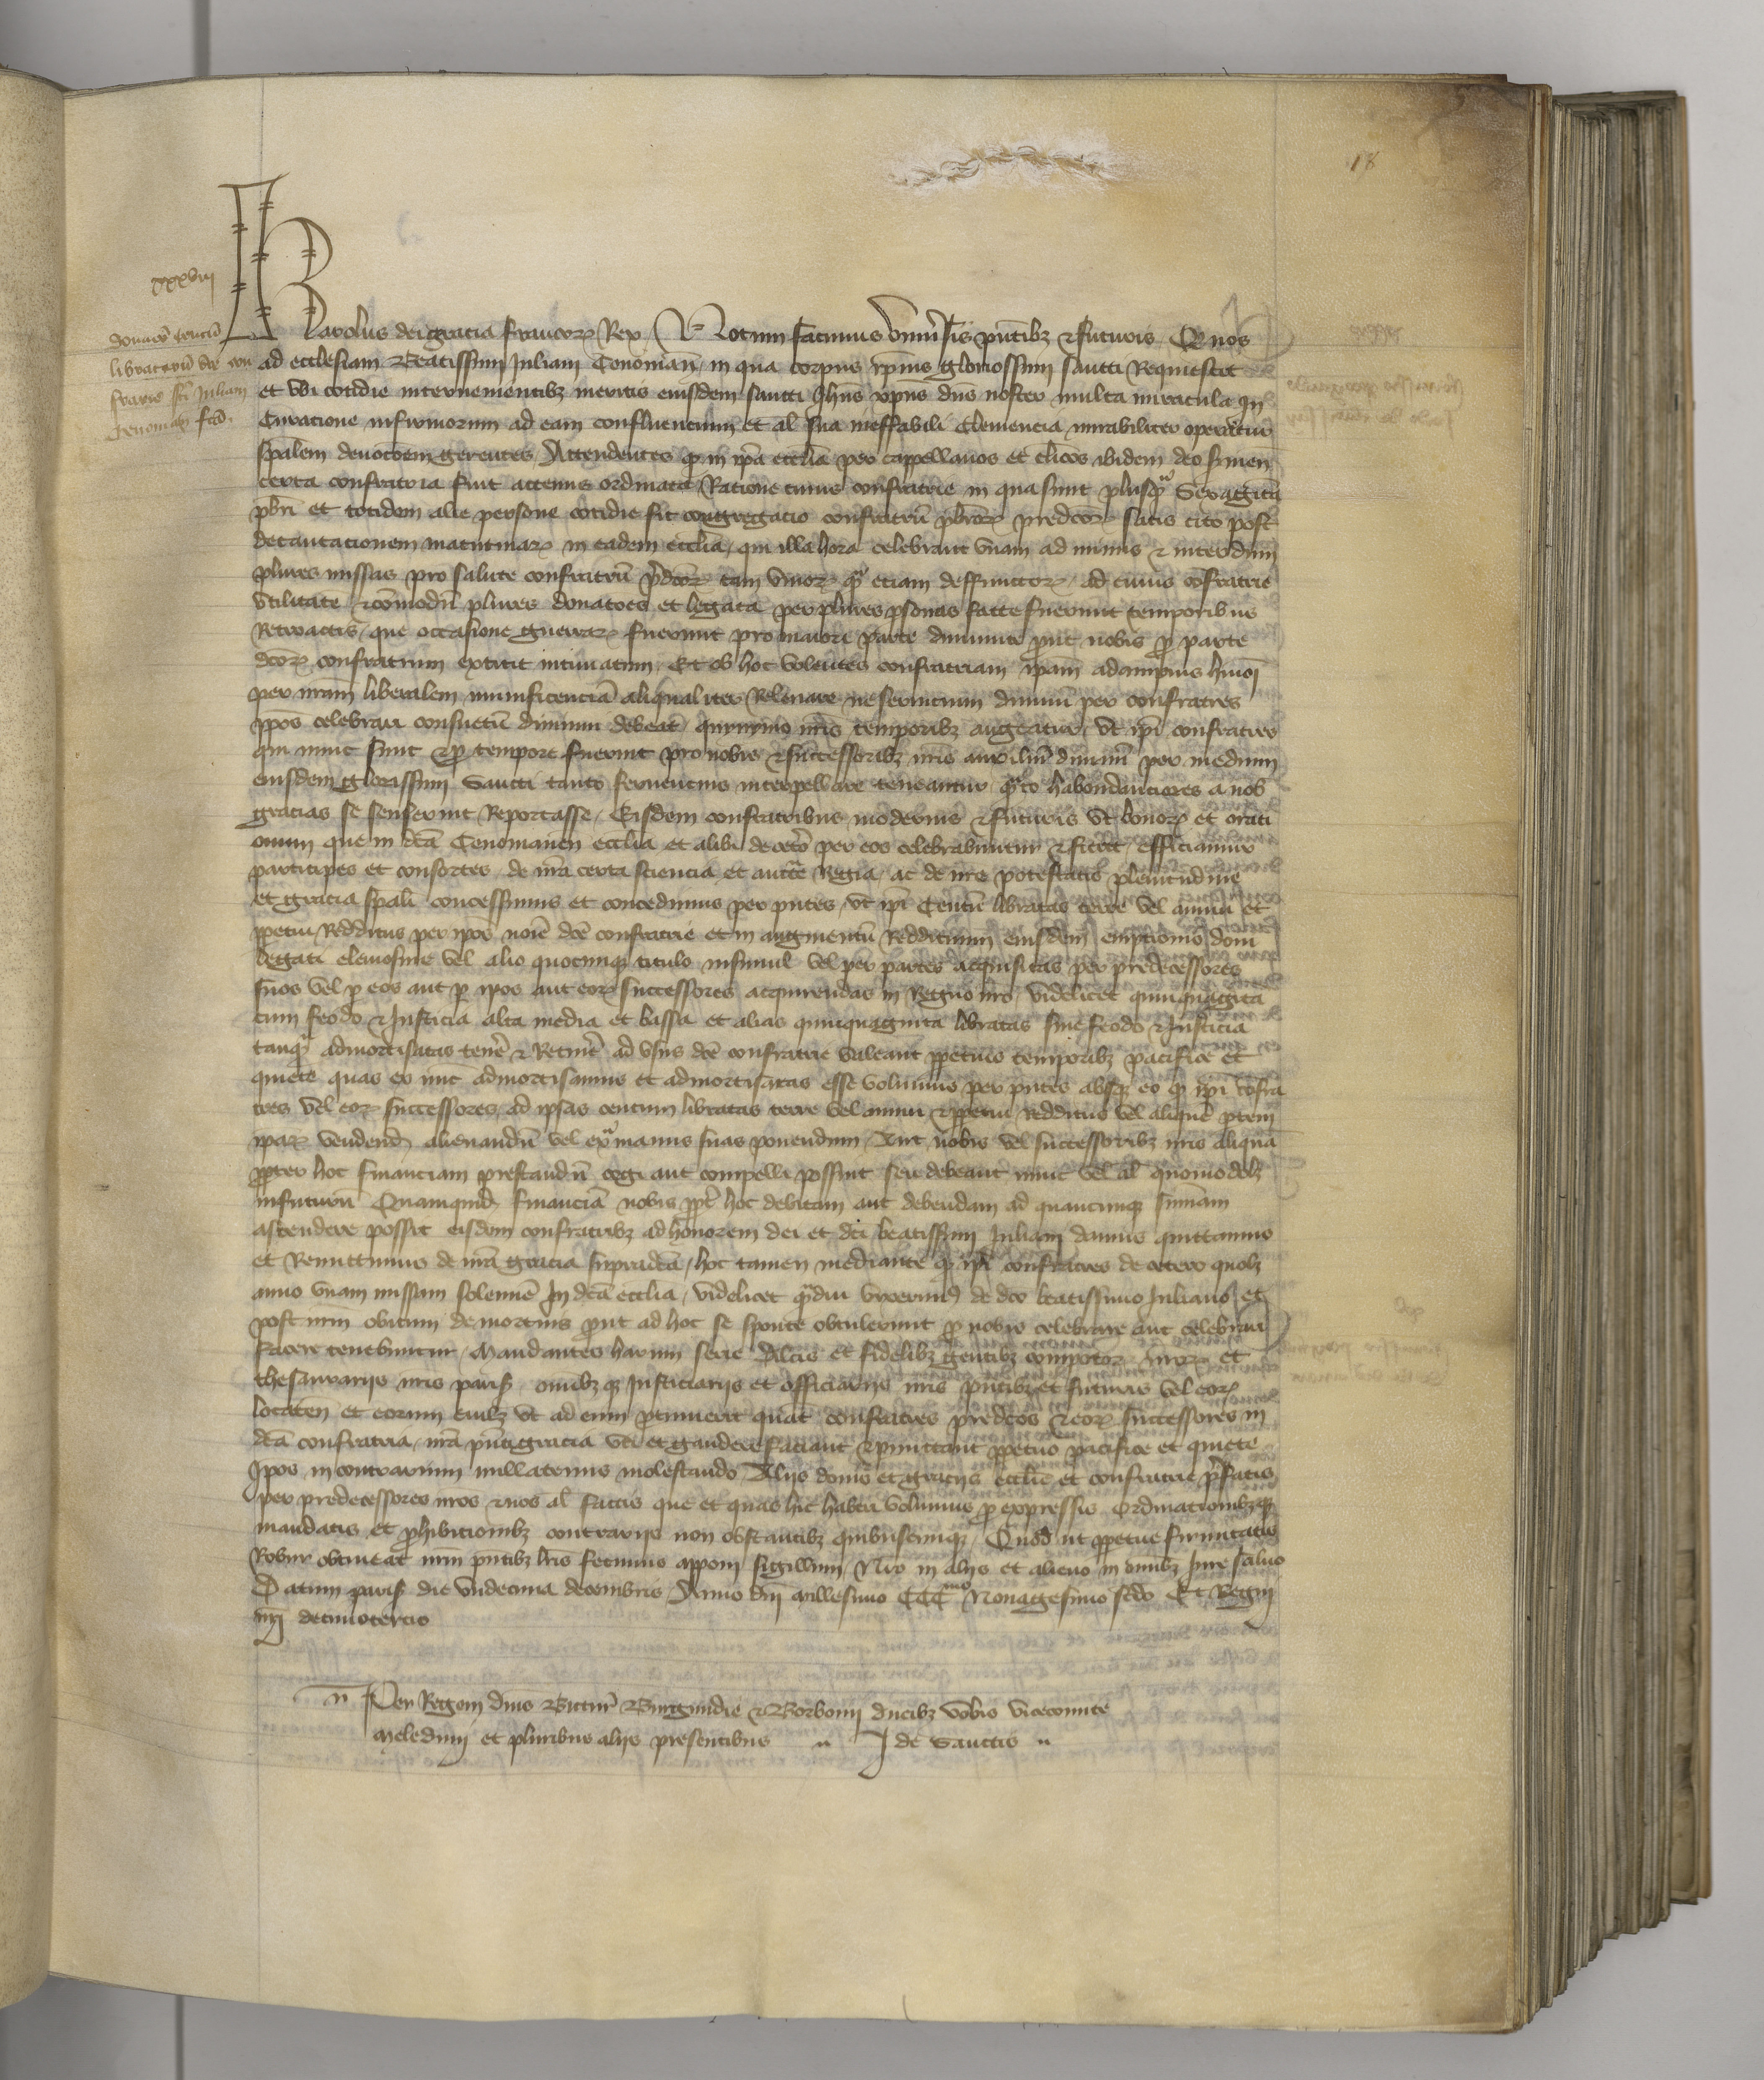 18
xxxviii
donum centum
libratarum dce con
fratrie sci Juliani
Cenoman fcm
Karolus dei gracia Francorꝝ Rex Notum facimus universis pñtibꝫ et futuris Qd nos
ad ecclesiam Beatissimi Juliani Cenomañ in qua corpus ipsius gloriosissimi sancti Requiescit
et ubi cotidie intervenientibꝫ meritis eiusdem sancti Jhus xpus dns noster multa miracula In
Curacione infirmorum ad eam confluencium et al sua ineffabili Clemencia mirabiliter operatur
spalem devocoem gerentes Attendentes ꝙ in ipa ecclia per cappellanos et clicos ibidem deo servien
certa confratria fuit actenus ordinata Ratione cuius confratrie in qua sunt plusꝗ Sexaginta
pbri et totidem alie persone cotidie fit congregacio confratrū pbrorꝝ predcorꝝ satis cito post
decantacionem matutinarꝝ in eadem ecclia, qui illa hora celebrant unam ad minus et interdum
plures missas pro salute confratrū pdcorꝝ tam vivorꝝ ꝗ etiam deffunctorꝝ, ad cuius cōfratrie
utilitatē et cōmodū plures donatoes et legata per plures psonas facte fuerunt temporibus
Retroactis, que occasione guerrarꝝ fuerunt pro maiore parte diminute put nobis ꝓ parte
dcorꝝ confratrum extitit intimatum Et ob hoc volentes confratriam ipam adampnis huiōi
per nram liberalem munificenciā aliqualiter Relevare ne servicium divinū per confratres
ipos celebrari consuetū diminui debeat, quinymo nris temporibꝫ augeatur, Ut ipi confratres
qui nunc sunt et ꝓ tempore fuerint pro nobis et successoribꝫ nris auxiliū divinū per medium
eiusdem gloriosissimi Sancti tanto fervencius interpellare teneantur, ꝗto habondanciores a nob
gracias se senserint Reportasse, Eisdem confratribus modernis et futuris Ut bonorꝝ et orati
onum que in dca Cenomaneñ ecclia et alibi decetero per eos celebrabuntur et fient, efficiamur
participes et consortes, de nra certa sciencia et auctte Regia, ac de nre potestatis plenitudine
et gracia spali concessimus et concedimus per pntes, ut ipi Centū libratas terre vel annui et
ppetui Redditus per ipos noīe dce confratrie et in augmentū Reddituum eiusdem empcionis doni
legati elemosine vel alio quocunqꝫ titulo insimul vel per partes acquisitas per predecessores
suos vel ꝑ eos aut ꝑ ipos aut eorꝝ successores acquirendas in Regno nro, videlicet quinquaginta
cum feodo et Justicia alta media et bassa et alias quinquaginta libratas sine feodo et Justicia
tanꝗ admortisatas teñe et Retiñe ad usus dce confratrie valeant ppetuis temporibꝫ pacifice et
quiete quas ex nūc admortisamus et admortisatas esse volumus per pntes absqꝫ eo ꝙ ipi cōfra
tres vel eorꝝ successores, ad ipsas centum libratas terre vel annui et ppetui, redditus vel aliquē ptem
iparꝝ vendend alienandū vel ex̃ manus suas ponendum, Aut nobis vel successoribꝫ nris aliquā
ppter hoc financiam prestandū cogi aut compelli possint seu debeant nunc vel al quomodolꝫ
infuturū Quamquid financiā nobis ppt hoc debitam aut debendam ad quancunqꝫ sūmam
ascendere possit eisdem confratribꝫ ad honorem dei et dci beatissimi Juliani damus quittamus
et Remittimus de nra gracia supradcā, hoc tamen mediante ꝙ ipi confratres de cetero quolꝫ
anno unam missam solennē In dcā ecclia, videlicet ꝗdiu vixerimꝰ de dco beatissimo Juliano et
post nrm obitum de mortuis put ad hoc se sponte obtulerunt ꝓ nobis celebrare aut celebrari
facere tenebuntur, Mandantes harum serie dilcis et fidelibꝫ gentibꝫ compotorꝝ nrorꝝ et
thesaurariis nris parisꝰ omibꝫ qꝫ Justiciariis et officiariis nris pntibꝫ et futuris vel eorꝝ
locateñ et eorum cuilꝫ ut ad eum ptinuerit quat confratres predcos et eorꝝ successores in
dcā confratria, nra pnti gracia uti et gaudere faciant et pmittant ppetuo pacifice et quiete
Ipos in contrarium nullatenus molestando Aliis donis et graciis ecclie et confratrie pfatis
per predecessores nros et nos al factis que et quas hic haberi volumus ꝓ expressis Ordinacionibꝫqꝫ
mandatis et phibicionibꝫ contrariis non obstantibꝫ quibuscunqꝫ, Quod ut ppetue firmitatis
Robur obtineat nrm pntibꝫ lris fecimus apponi sigillum, Nro in aliis et alieno in omibꝫ Jure salvo
Datum parisꝰ die undecima decembris Anno dni millesimo CCC mo Nonagesimo scdo Et Regni
nri decimotercio
Per Regem dnis Bituriꝰ Burgundie et Borbonii ducibꝫ vobis vicecomite
Meleduni et pluribus aliis presentibus J de Sanctis